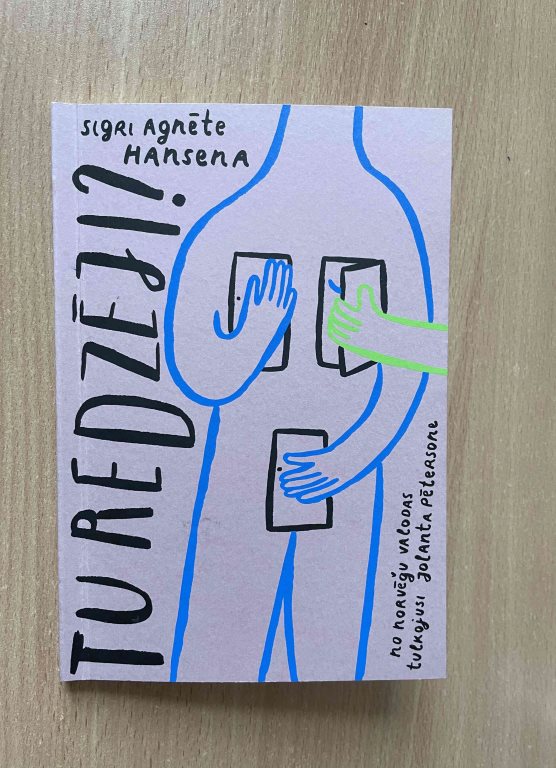 Sigri Agnēte
Hansena
TU REDZĒJI?
no norvēģu valodas
tulkojusi Jolanta Pētersone